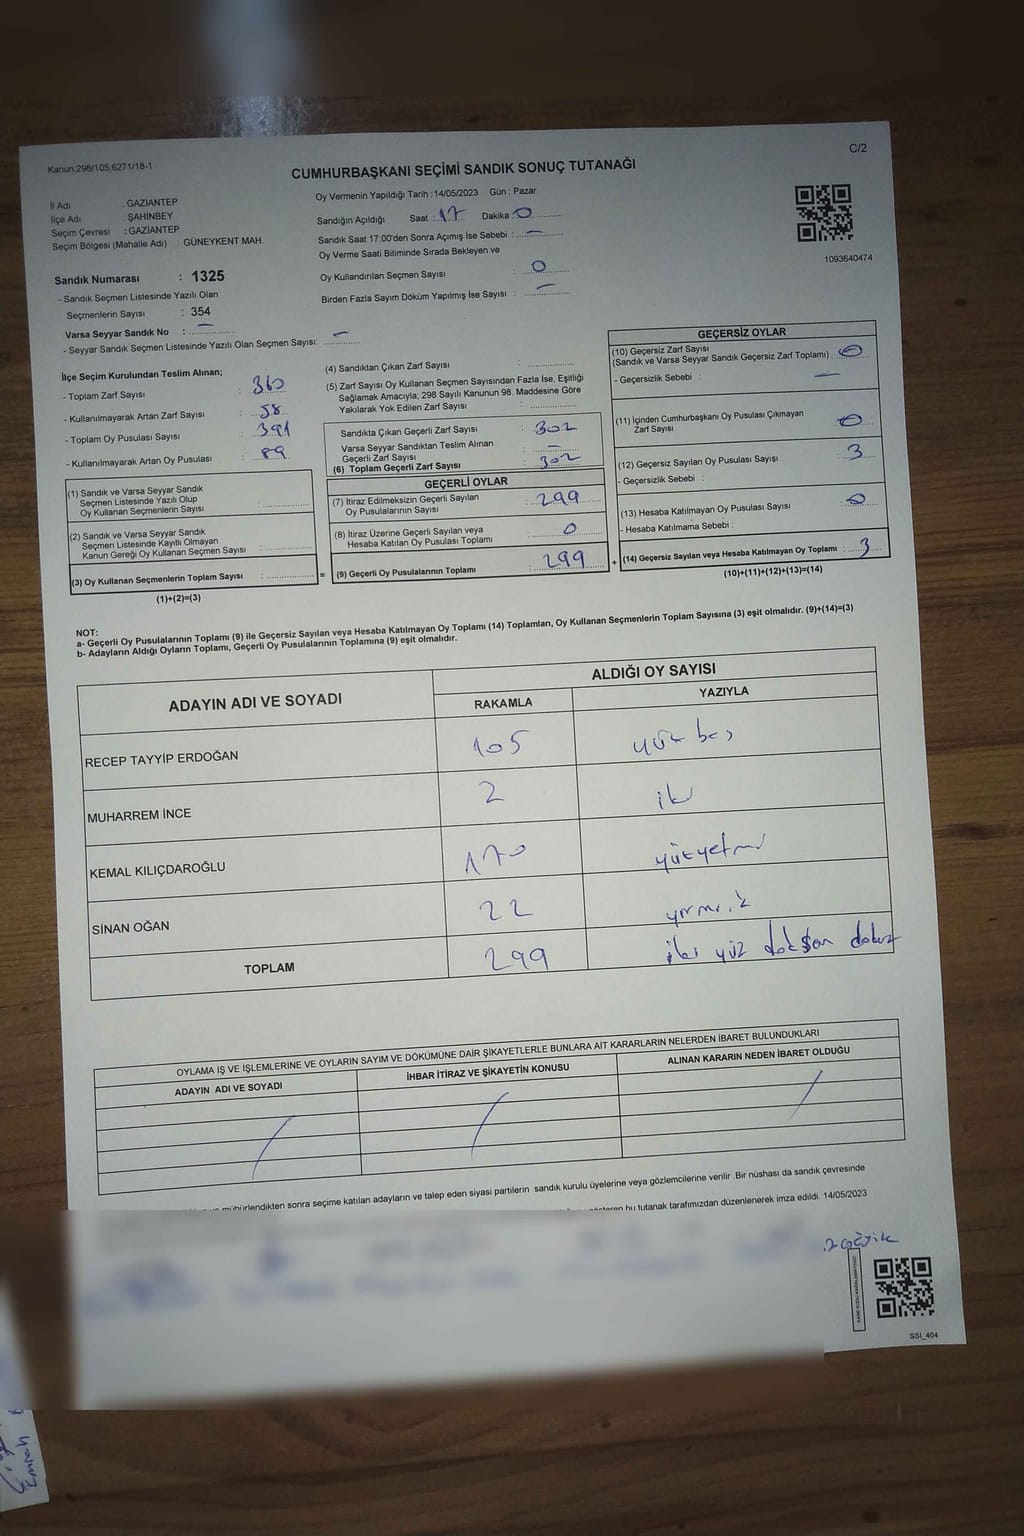 Kanun:298/105,6271/18-1
C/2
CUMHURBAŞKANI SEÇİMİ SANDIK SONUÇ TUTANAĞI
Oy Vermenin Yapıldığı Tarih : 14/05/2023 Gün : Pazar
İl Adı : GAZİANTEP
İlçe Adı : ŞAHİNBEY
Seçim Çevresi : GAZİANTEP
Seçim Bölgesi (Mahalle Adı) : GÜNEYKENT MAH.
Sandığın Açıldığı Saat : 17 Dakika : 0
Sandık Saat 17:00'den Sonra Açımış İse Sebebi : –
Oy Verme Saati Bitiminde Sırada Bekleyen ve
Oy Kullandırılan Seçmen Sayısı : 0
Birden Fazla Sayım Döküm Yapılmış İse Sayısı : –
1093640474
Sandık Numarası : 1325
- Sandık Seçmen Listesinde Yazılı Olan
Seçmenlerin Sayısı : 354
Varsa Seyyar Sandık No : –
- Seyyar Sandık Seçmen Listesinde Yazılı Olan Seçmen Sayısı: –
İlçe Seçim Kurulundan Teslim Alınan;
- Toplam Zarf Sayısı : 360
- Kullanılmayarak Artan Zarf Sayısı : 58
- Toplam Oy Pusulası Sayısı : 391
- Kullanılmayarak Artan Oy Pusulası : 89
(1) Sandık ve Varsa Seyyar Sandık
Seçmen Listesinde Yazılı Olup
Oy Kullanan Seçmenlerin Sayısı :
(2) Sandık ve Varsa Seyyar Sandık
Seçmen Listesinde Kayıtlı Olmayan
Kanun Gereği Oy Kullanan Seçmen Sayısı :
(3) Oy Kullanan Seçmenlerin Toplam Sayısı : =
(1)+(2)=(3)
(4) Sandıktan Çıkan Zarf Sayısı :
(5) Zarf Sayısı Oy Kullanan Seçmen Sayısından Fazla İse, Eşitliği
Sağlamak Amacıyla, 298 Sayılı Kanunun 98. Maddesine Göre
Yakılarak Yok Edilen Zarf Sayısı :
Sandıkta Çıkan Geçerli Zarf Sayısı : 302
Varsa Seyyar Sandıktan Teslim Alınan
Geçerli Zarf Sayısı : –
(6) Toplam Geçerli Zarf Sayısı : 302
GEÇERLİ OYLAR
(7) İtiraz Edilmeksizin Geçerli Sayılan
Oy Pusulalarının Sayısı : 299
(8) İtiraz Üzerine Geçerli Sayılan veya
Hesaba Katılan Oy Pusulası Toplamı : 0
(9) Geçerli Oy Pusulalarının Toplamı : 299 +
GEÇERSİZ OYLAR
(10) Geçersiz Zarf Sayısı
(Sandık ve Varsa Seyyar Sandık Geçersiz Zarf Toplamı) : 0
- Geçersizlik Sebebi : –
(11) İçinden Cumhurbaşkanı Oy Pusulası Çıkmayan
Zarf Sayısı : 0
(12) Geçersiz Sayılan Oy Pusulası Sayısı : 3
- Geçersizlik Sebebi :
(13) Hesaba Katılmayan Oy Pusulası Sayısı : 0
- Hesaba Katılmama Sebebi :
(14) Geçersiz Sayılan veya Hesaba Katılmayan Oy Toplamı : 3
(10)+(11)+(12)+(13)=(14)
NOT:
a- Geçerli Oy Pusulalarının Toplamı (9) ile Geçersiz Sayılan veya Hesaba Katılmayan Oy Toplamı (14) Toplamları, Oy Kullanan Seçmenlerin Toplam Sayısına (3) eşit olmalıdır. (9)+(14)=(3)
b- Adayların Aldığı Oyların Toplamı, Geçerli Oy Pusulalarının Toplamına (9) eşit olmalıdır.
ADAYIN ADI VE SOYADI ALDIĞI OY SAYISI
RAKAMLA YAZIYLA
RECEP TAYYİP ERDOĞAN 105 yüz beş
MUHARREM İNCE 2 iki
KEMAL KILIÇDAROĞLU 170 yüzyetmiş
SİNAN OĞAN 22
TOPLAM 299 iki yüz doksan dokuz
OYLAMA İŞ VE İŞLEMLERİNE VE OYLARIN SAYIM VE DÖKÜMÜNE DAİR ŞİKAYETLERLE BUNLARA AİT KARARLARIN NELERDEN İBARET BULUNDUKLARI
ADAYIN ADI VE SOYADI İHBAR İTİRAZ VE ŞİKAYETİN KONUSU ALINAN KARARIN NEDEN İBARET OLDUĞU
mühürlendikten sonra seçime katılan adayların ve talep eden siyasi partilerin sandık kurulu üyelerine veya gözlemcilerine verilir .Bir nüshası da sandık çevresinde
bu tutanak tarafımızdan düzenlenerek imza edildi. 14/05/2023
SSİ_404
Emrah